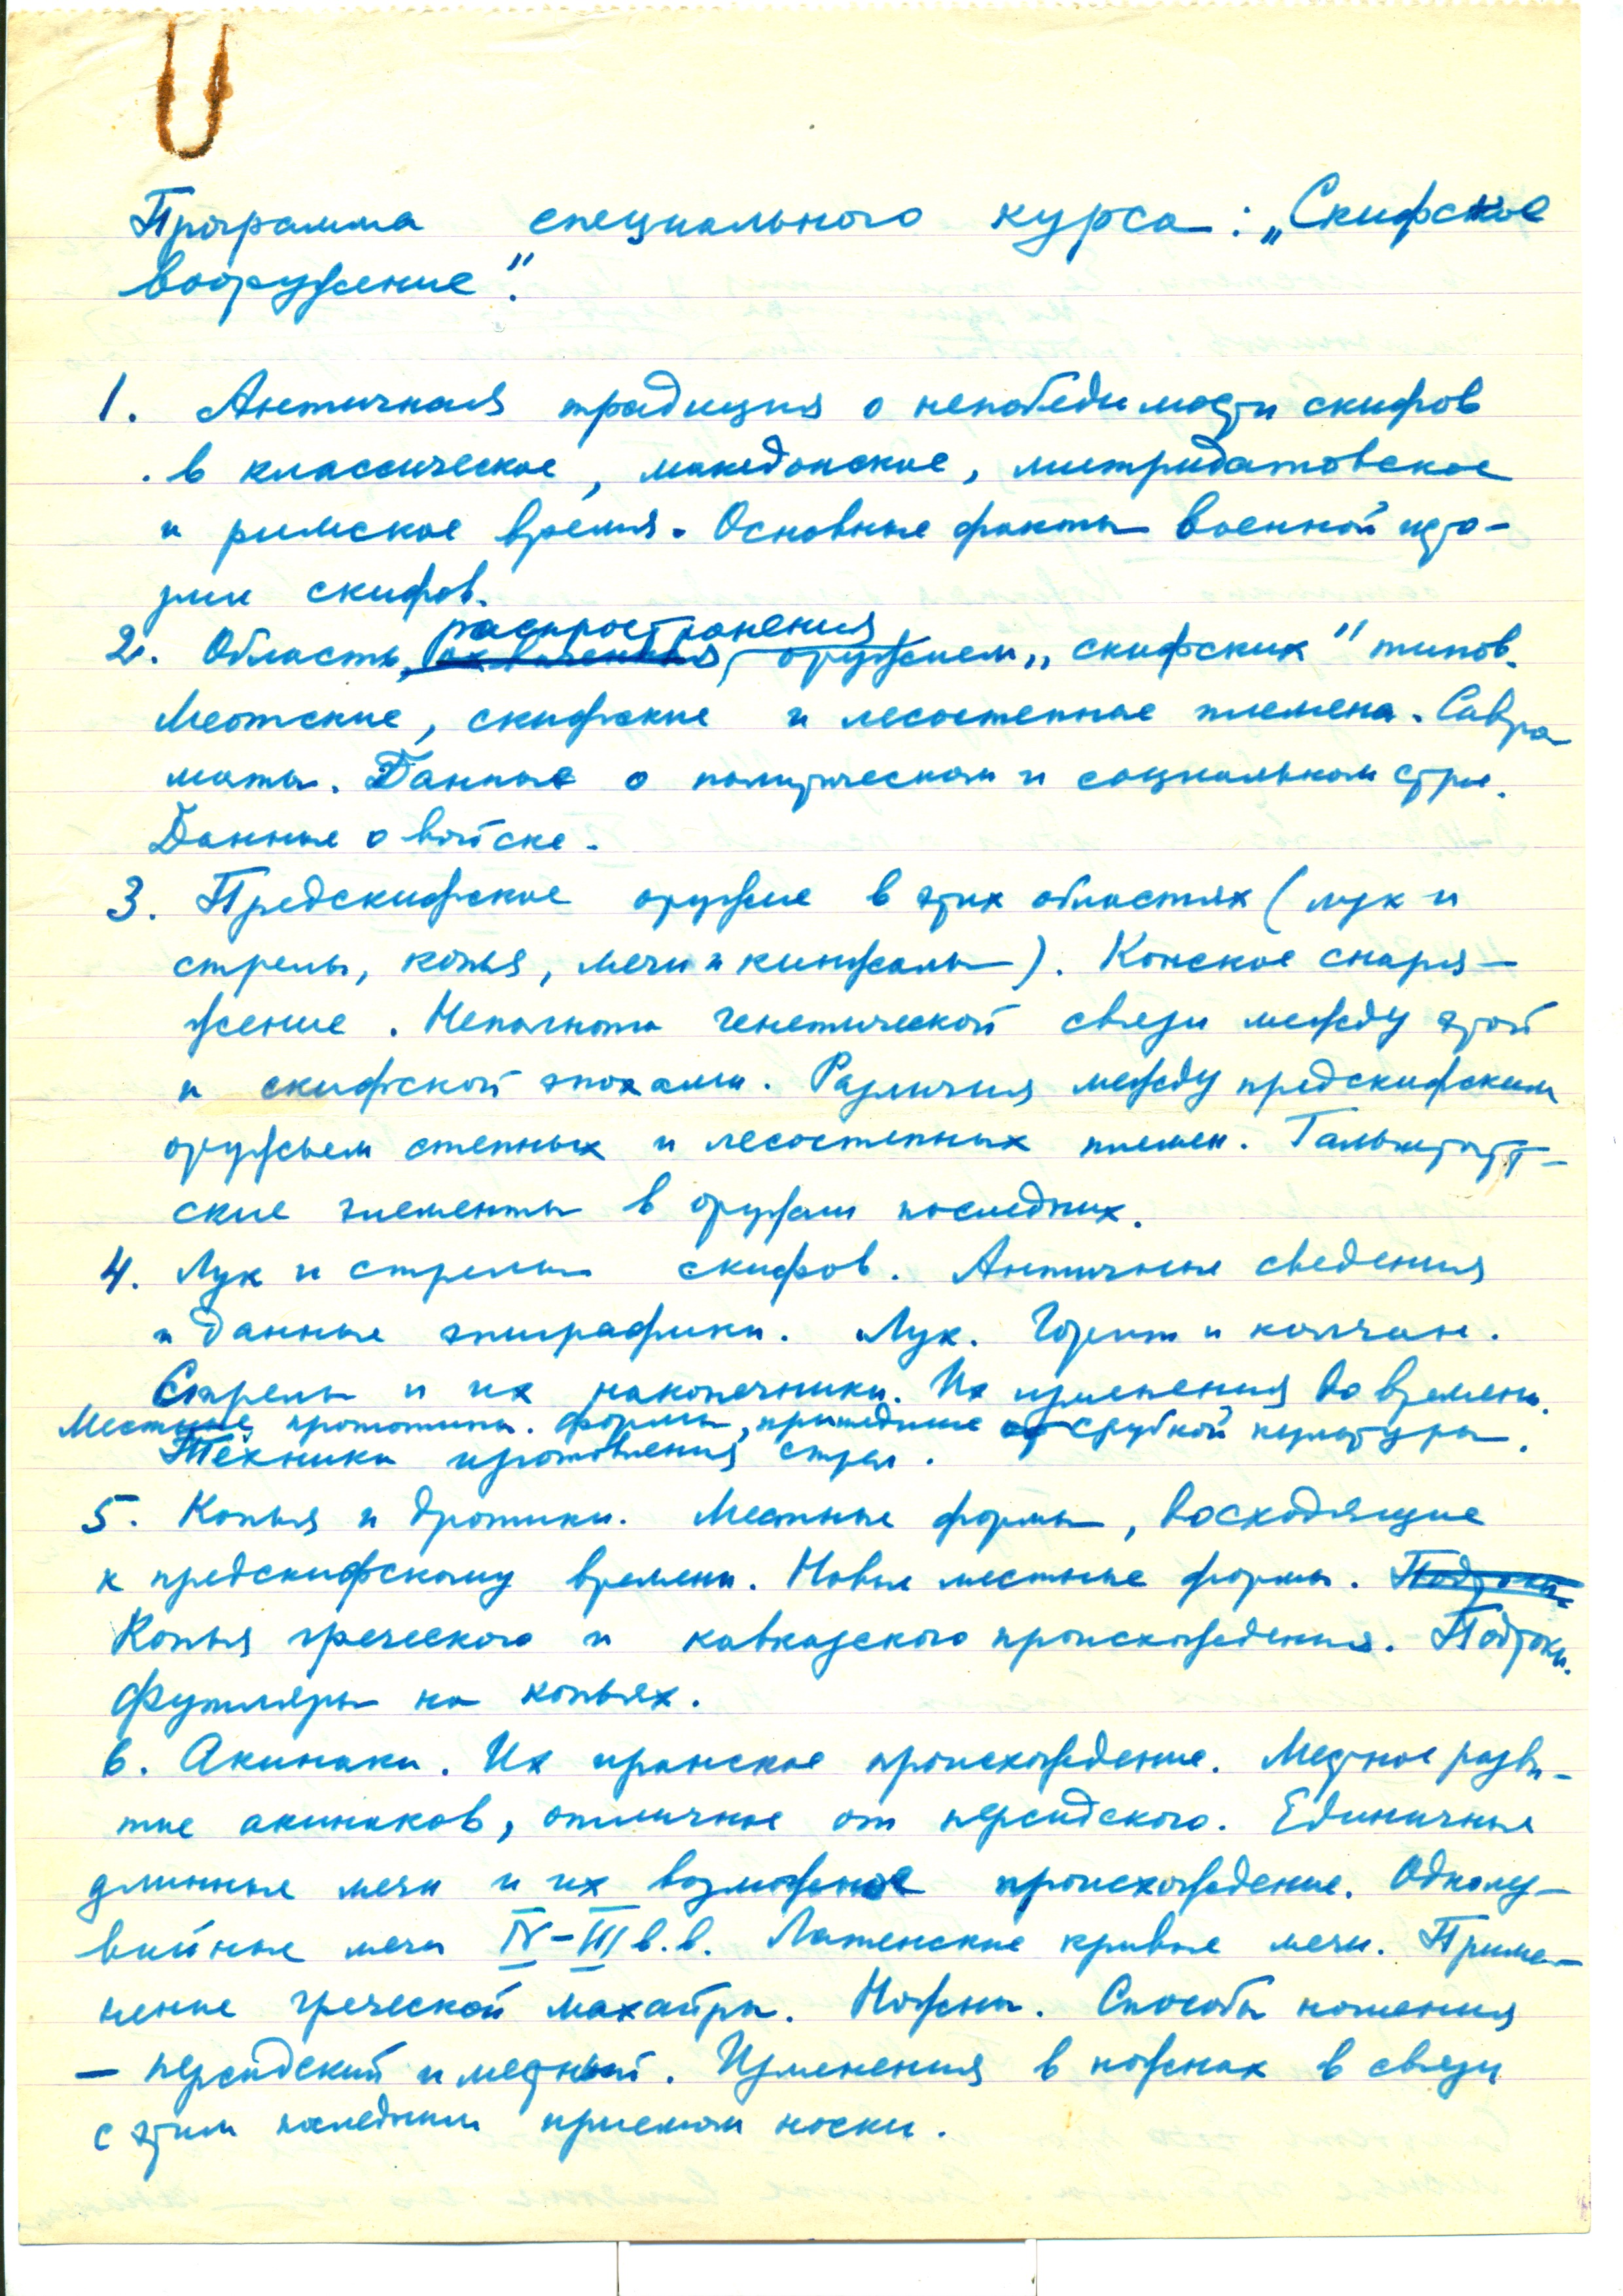 Программа специального курса: „Скифское
вооружение".
1. Античная традиция о непобедимости скифов
в классическое, македонское, митридатовское
и римское время. Основные факты военной исто-
рии скифов.
распространения
2. Область охваченная оружием „скифских" типов.
Меотские, скифские и лесостепные племена. Савро
маты. Данные о политическом и социальном строе.
Данные о войске.
3. Предскифское оружие в этих областях (лук и
стрелы, копья, мечи и кинжалы). Конское снаря-
жение. Неполнота генетической связи между этой
и скифской эпохами. Различия между предскифским
оружьем степных и лесостепных племен. Гальштатт-
ские элементы в оружии последних.
4. Лук и стрелы скифов. Античные сведения
и данные эпиграфики. Лук. Горит и колчан.
Стрелы и их наконечники. Их изменения во времени.
Местные прототипы. Формы, пришедшие от срубной культуры.
Техника изготовления стрел.
5. Копья и дротики. Местные формы, восходящие
к предскифскому времени. Новые местные формы. Подтоки.
Копья греческого и кавказского происхождения. Подтоки.
Футляры на копьях.
6. Акинаки. Их иранское происхождение. Местное разви-
тие акинаков, отличное от персидского. Единичные
длинные мечи и их возможное происхождение. Одноле-
звийные мечи IV-III в.в. Латенские кривые мечи. Приме-
нение греческой махайры. Ножны. Способы ношения
— персидский и местный. Изменения в ножнах в связи
с этим последним приемом носки.